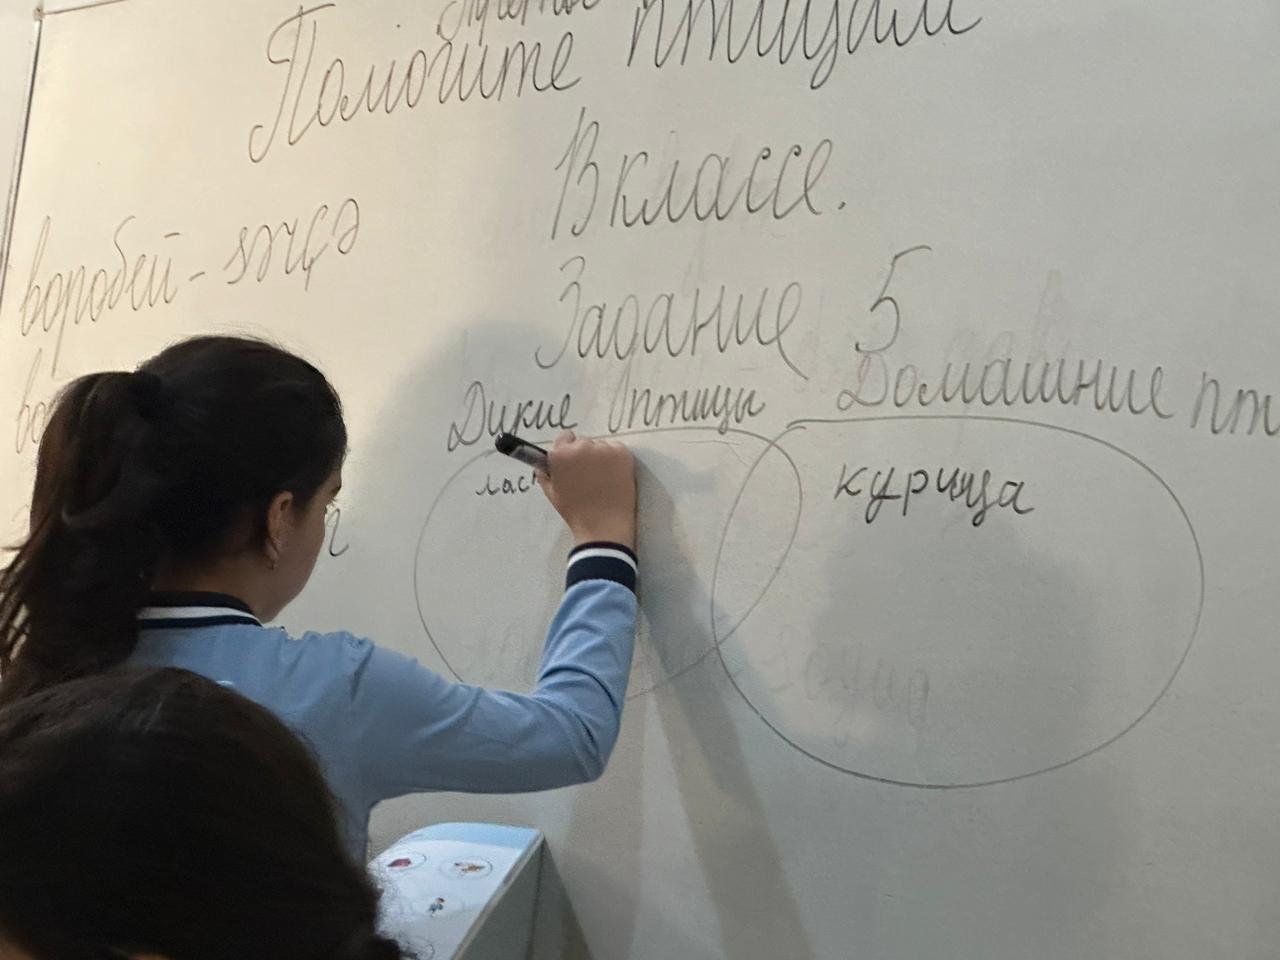 Помогите птицам
В классе.
воробей - sərçə
Задание 5
Дикие птицы Домашние пт
лас
курица